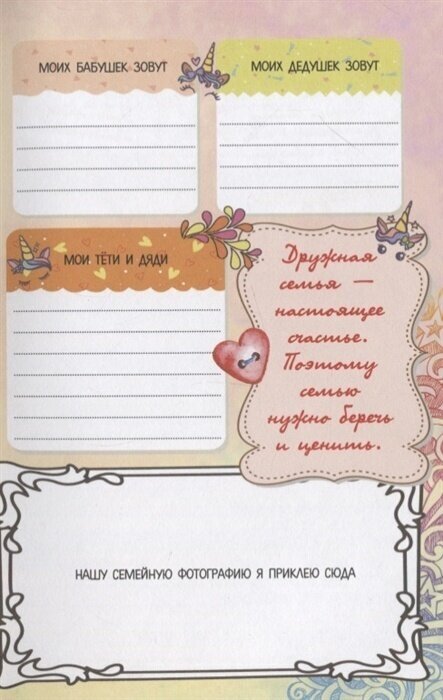 МОИХ БАБУШЕК ЗОВУТ
МОИХ ДЕДУШЕК ЗОВУТ
МОИ ТЁТИ И ДЯДИ
Дружная
семья —
настоящее
счастье.
Поэтому
семью
нужно беречь
и ценить.
НАШУ СЕМЕЙНУЮ ФОТОГРАФИЮ Я ПРИКЛЕЮ СЮДА